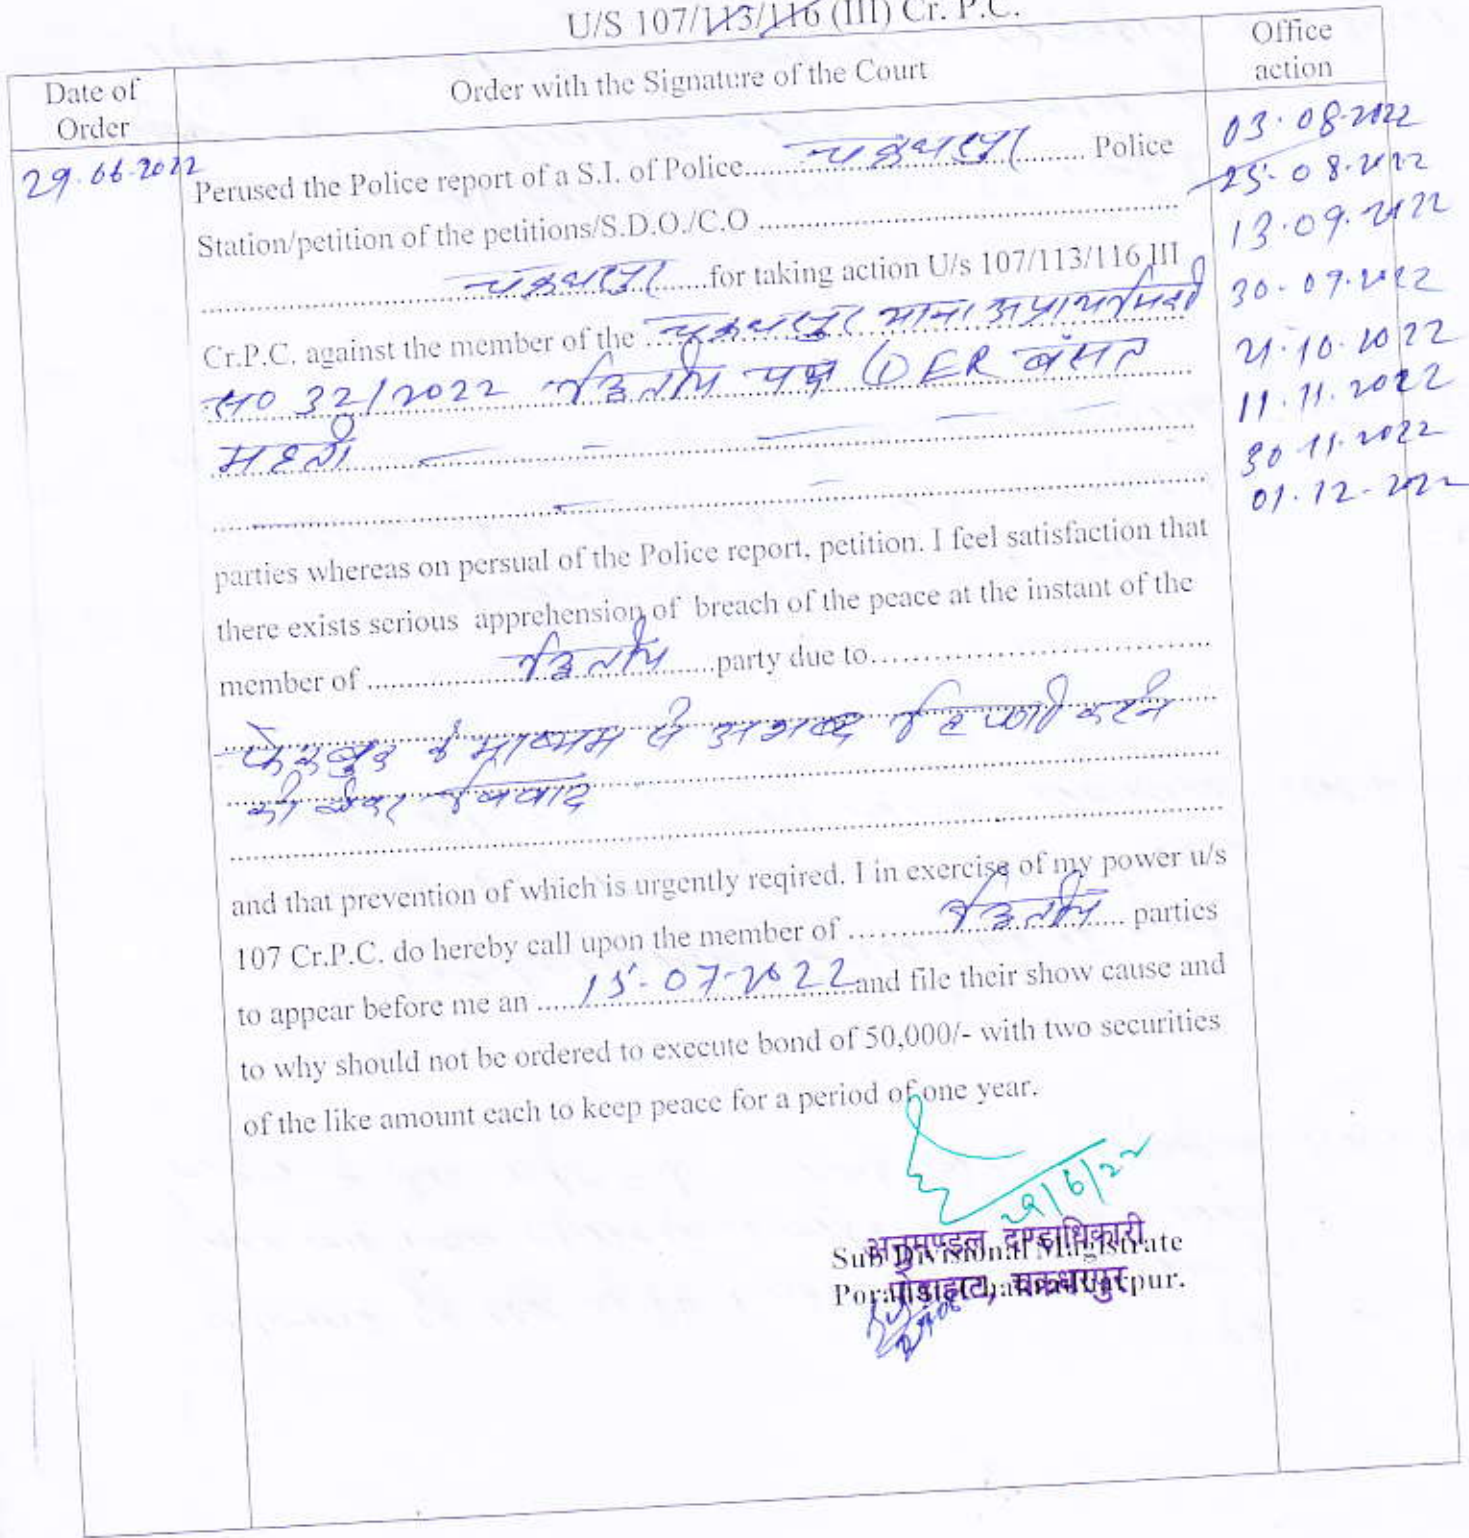 U/S 107/113/116 (III) Cr. P.C.
Date of Order
Order with the Signature of the Court
Office action
29.06.2022
Perused the Police report of a S.I. of Police.....चक्रधरपुर..... Police
Station/petition of the petitions/S.D.O./C.O .....
.....चक्रधरपुर.....for taking action U/s 107/113/116 III
Cr.P.C. against the member of the ...चक्रधरपुर थाना अप्राथमिकी
सं० 32/2022 द्वितीय पक्ष ① ER बसंत
महतो
parties whereas on persual of the Police report, petition. I feel satisfaction that
there exists serious apprehension of breach of the peace at the instant of the
member of .....द्वितीय.....party due to.....
फेसबुक के माध्यम से अपशब्द टिप्पणी करने
को लेकर विवाद
and that prevention of which is urgently reqired. I in exercise of my power u/s
107 Cr.P.C. do hereby call upon the member of .....द्वितीय..... parties
to appear before me an .....15-07-2022.....and file their show cause and
to why should not be ordered to execute bond of 50,000/- with two securities
of the like amount each to keep peace for a period of one year.
29/6/22
अनुमण्डल दण्डाधिकारी
Sub Divisional Magistrate
पोड़ाहाट, चक्रधरपुर
Porahat, Chakradharpur.
03.08.2022
25.08.2022
13.09.2022
30.09.2022
21.10.2022
11.11.2022
30.11.2022
01.12.2022